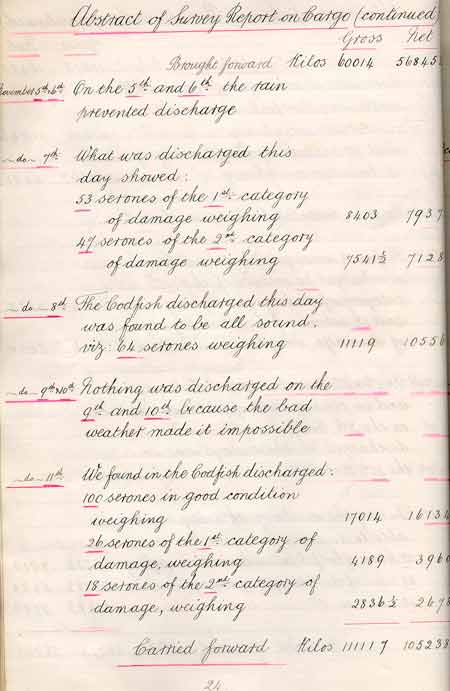 Abstract of Survey Report on Cargo (continued)
Gross Net
Brought forward Kilos 60014 5684
November 5th & 6th On the 5th and 6th the rain
prevented discharge
~do~ 7th What was discharged this
day showed:
53 serones of the 1st category
of damage weighing 8403 7937
47 serones of the 2nd category
of damage weighing 7541½ 7128
~do~ 8th The Codfish discharged this day
was found to be all sound.
viz: 64 serones weighing 11119 10556
~do~ 9th & 10th Nothing was discharged on the
9th and 10th because the bad
weather made it impossible
~do~ 11th We found in the Codfish discharged:
100 serones in good condition
weighing 17014 16134
26 serones of the 1st category of
damage, weighing 4189 3960
18 serones of the 2nd category of
damage, weighing 2836½ 2678
Carried forward Kilos 111117 105238
24